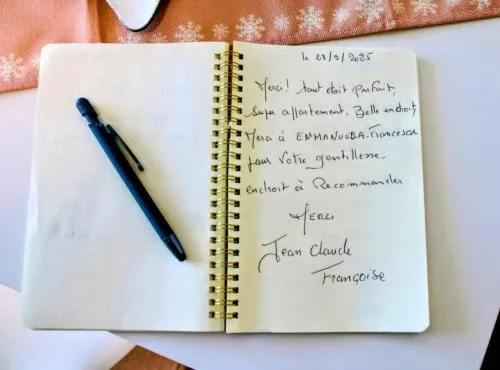 le 28/9/2025
Merci! tout etait parfait,
Super appartement. Belle enchoit,
Merci à EMMANUELA. Francesca
pour Votre gentillesse.
enchoit à Recommander
MERCI
Jean Claude
Françoise